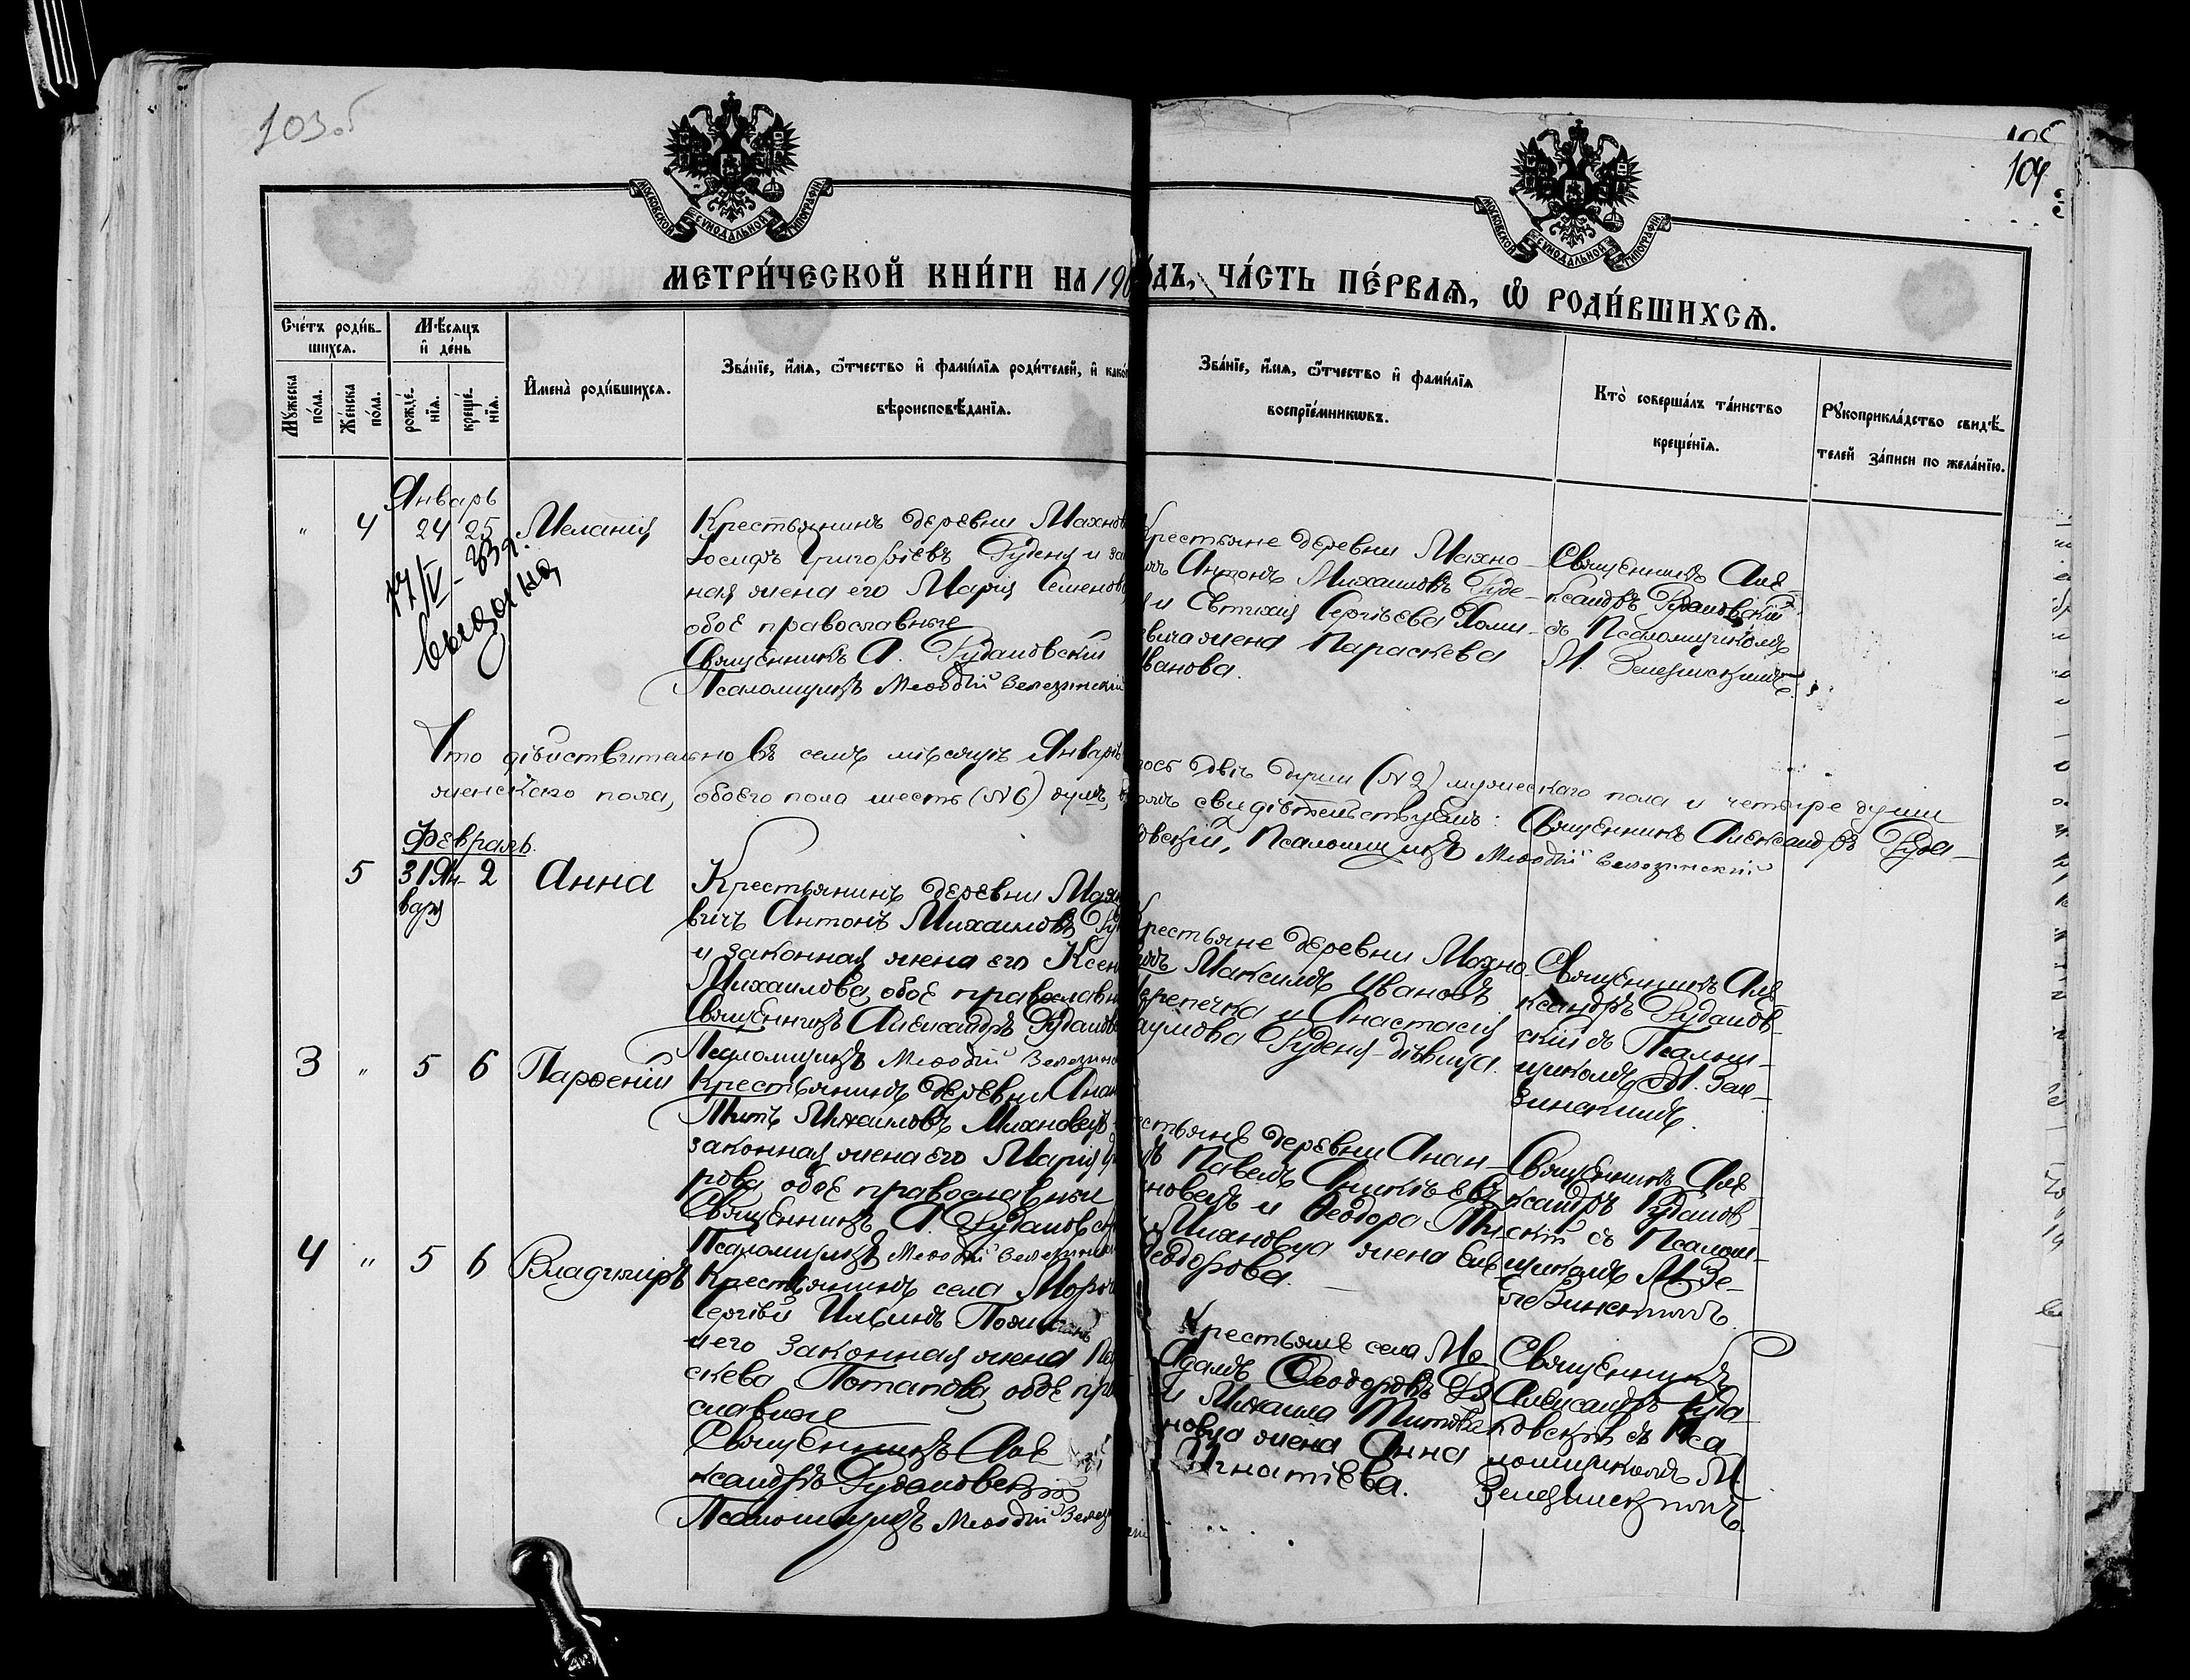 103об
104
МОСКОВСКОЙ СѴНОДАЛЬНОЙ ТИПОГРАФІИ
МОСКОВСКОЙ СѴНОДАЛЬНОЙ ТИПОГРАФІИ
МЕТРИ́ЧЕСКОЙ КНИ́ГИ НА 190
ДЪ, ЧА́СТЬ ПЕ́РВАѦ, Ѽ РОДИ́ВШИХСѦ.
Сче́тъ роди́в-
шихсѧ.
Мѣ́сѧцъ
и҆ де́нь
Мꙋ́жеска
по́ла.
Же́нска
по́ла.
рожде́-
нїѧ.
креще́-
нїѧ.
И҆мена̀ роди́вшихсѧ.
Зва́нїе, и҆́мѧ, ѻ҆́тчество и҆ фами́лїѧ роди́телей, и҆ како́
вѣроисповѣ́данїѧ.
Зва́нїе, и҆́мѧ, ѻ҆́тчество и҆ фами́лїѧ
воспрїе́мникѡвъ.
Кто̀ соверша́лъ та́инство
креще́нїѧ.
Рꙋкоприкла́дство свидѣ́-
телей за́писи по жела́нїю.
Январь
" 4 24 25 Меланія
Крестьянинъ деревни Махнов
Іосифъ Григорьевъ Гуденя и за
ная жена его Марія Семенов
обоє православные
Священникъ А. Гудановский
Псаломщикъ Меѳодій Велезинскій
Крестьяне деревни Махно-
Антонъ Михаиловъ Гуде-
и Евтихія Сергіева Хоми-
вича жена Параскева
Иванова.
Священникъ Але
ксандръ Гудановскій
съ Псаломщикомъ
М. Велезинскимъ
17/IV - 39г.
выдана
Что дѣйствительно въ семъ мѣсяцѣ Январѣ
лось двѣ души (№2) мужескаго пола и четыре души
женскаго пола, обоего пола шесть (№6) душъ,
свидѣтельствуемъ: Священникъ Александръ Гуда-
овскій, Псаломщикъ Меѳодій Велезинскій
Февраль
5 31 Ян- 2 Анна
варя
Крестьянинъ деревни Махн
вичъ Антонъ Михаиловъ Гу
и законная жена его Ксен
Михаилова, обоє православн
Священникъ Александръ Гудановс
Псаломщикъ Меѳодій Велезинс
Крестьяне деревни Махно-
Максимъ Ивановъ
Черепечка и Анастасія
аумова Гуденя-дѣвица.
Священникъ Але
ксандръ Гуданов-
скій съ Псалом-
щикомъ М. Веле-
зинскимъ.
3 " 5 6 Парѳеній
Крестьянинъ деревни Анан
Титъ Михаиловъ Михновец
законная жена его Марія
рова обоє православные
Священникъ А. Гудановск
Псаломщикъ Меѳодій Велезинск
естьяне деревни Анан-
Павелъ Аникіевъ
новецъ и Ѳеодора Ти
Михновца жена Еле
Ѳеодорова.
Священникъ Але
ксандръ Гуданов-
скій съ Псалом-
щикомъ М. Ве-
лезинскимъ.
4 " 5 6 Владиміръ
Крестьянинъ села Моро
Сергѣй Ильинъ
и его законная жена Па
скева Потапова, обоє пра
славные
Священникъ Але
ксандръ Гудановскій
Псаломщикъ Меѳодій Велез
Крестьяне села Мо
Адамъ Ѳеодоровъ
и Михаила Титова
новца жена Анна
Игнатіева.
Священникъ
Александръ Гуда-
новскій съ Пса
ломщикомъ М.
Велезинскимъ.